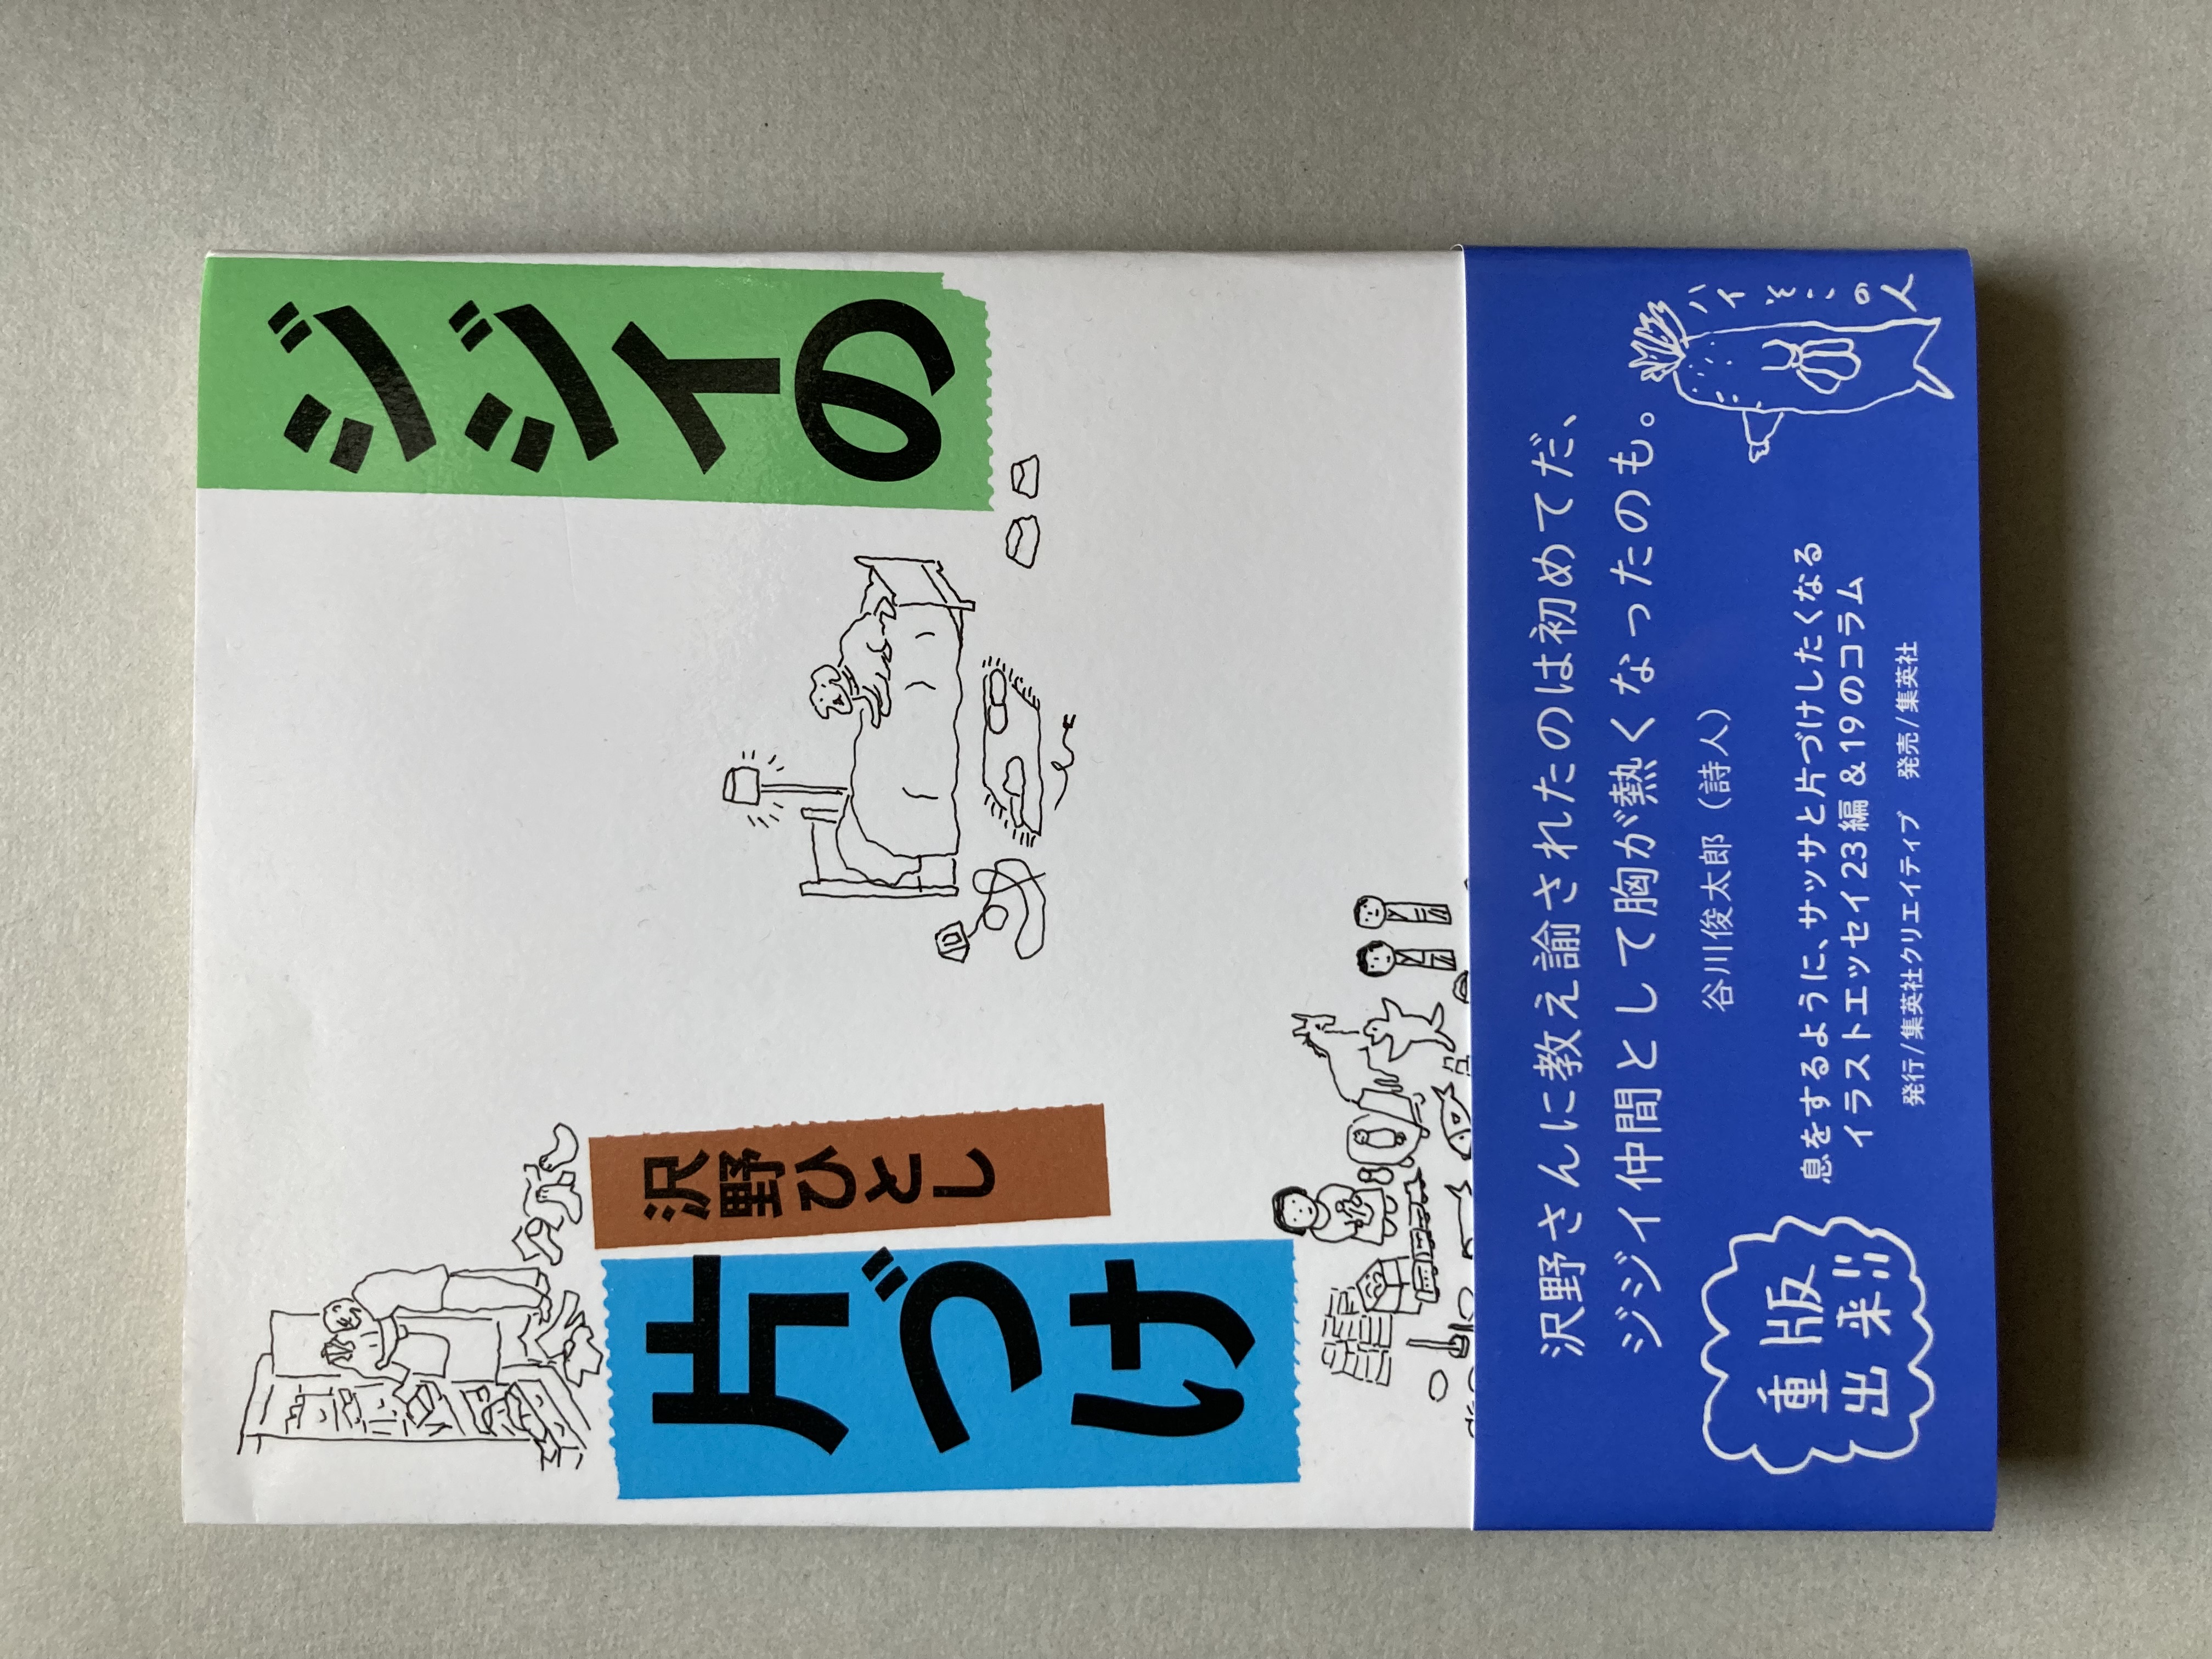 ジジイの
片づけ
沢野ひとし
沢野さんに教え諭されたのは初めてだ、
ジジイ仲間として胸が熱くなったのも。
谷川俊太郎（詩人）
ハイそこの人
重版
出来!!
息をするように、サッサと片づけしたくなる
イラストエッセイ23編＆19のコラム
発行/集英社クリエイティブ 発売/集英社